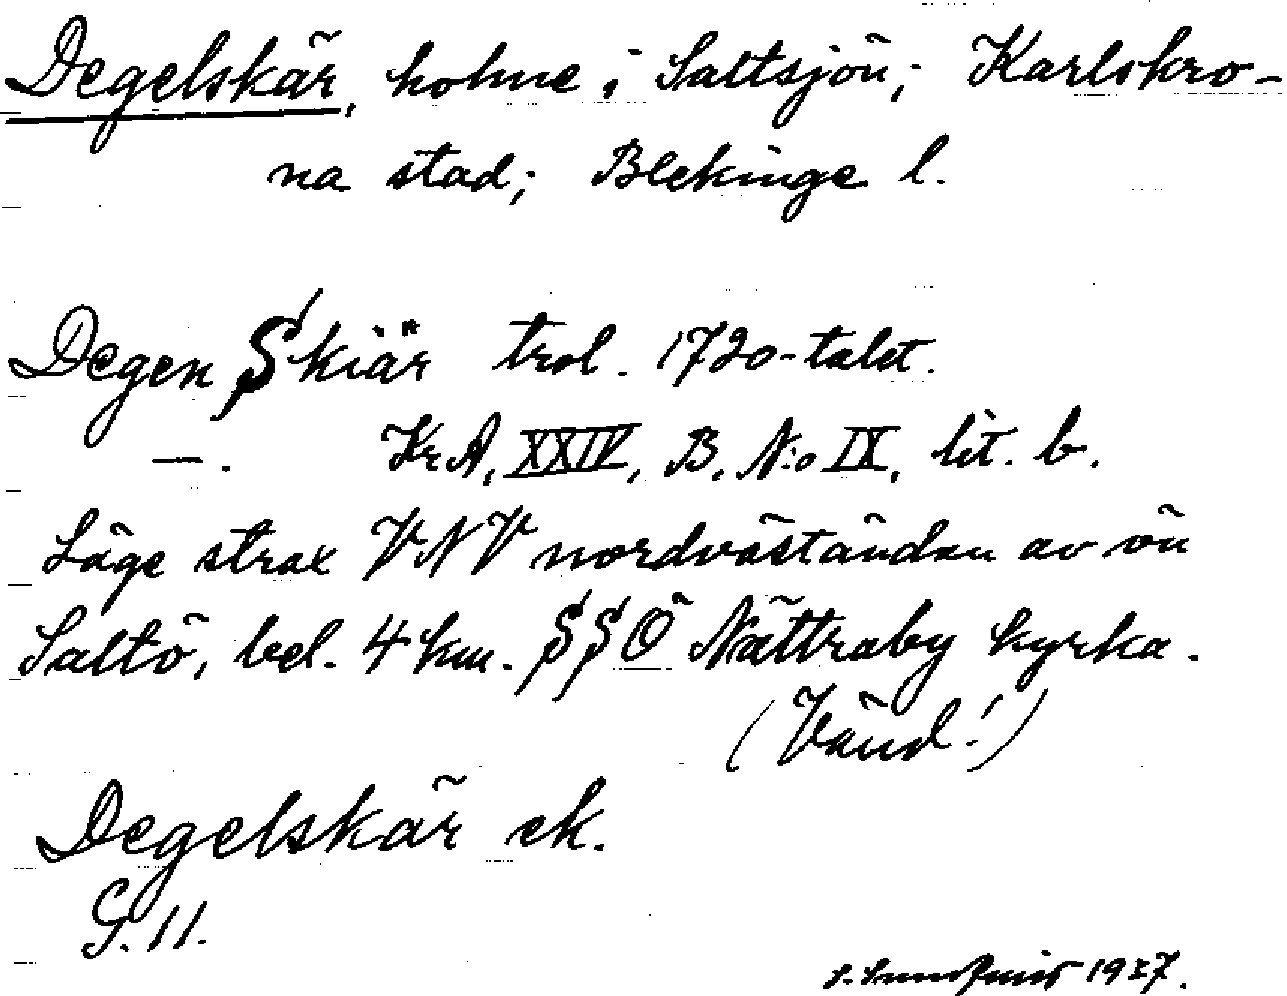 Degelskär, holme i Saltsjön; Karlskro-
na stad; Blekinge l.
Degen Skiär trol. 1720-talet.
—. KrA, XXIV, B. N:o IX, lit. b.
Läge strax VNV nordväständan av ön
Saltö, bel. 4 km. SSÖ Nättraby kyrka.
(Vänd!)
Degelskär ek.
S. 11.
1927.